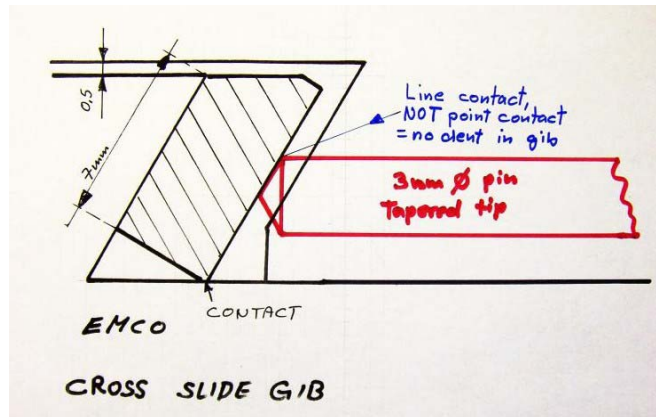 0,5
7mm
Line contact,
NOT point contact
= no dent in gib
3mm Ø pin
Taperred tip
CONTACT
EMCO
CROSS SLIDE GIB